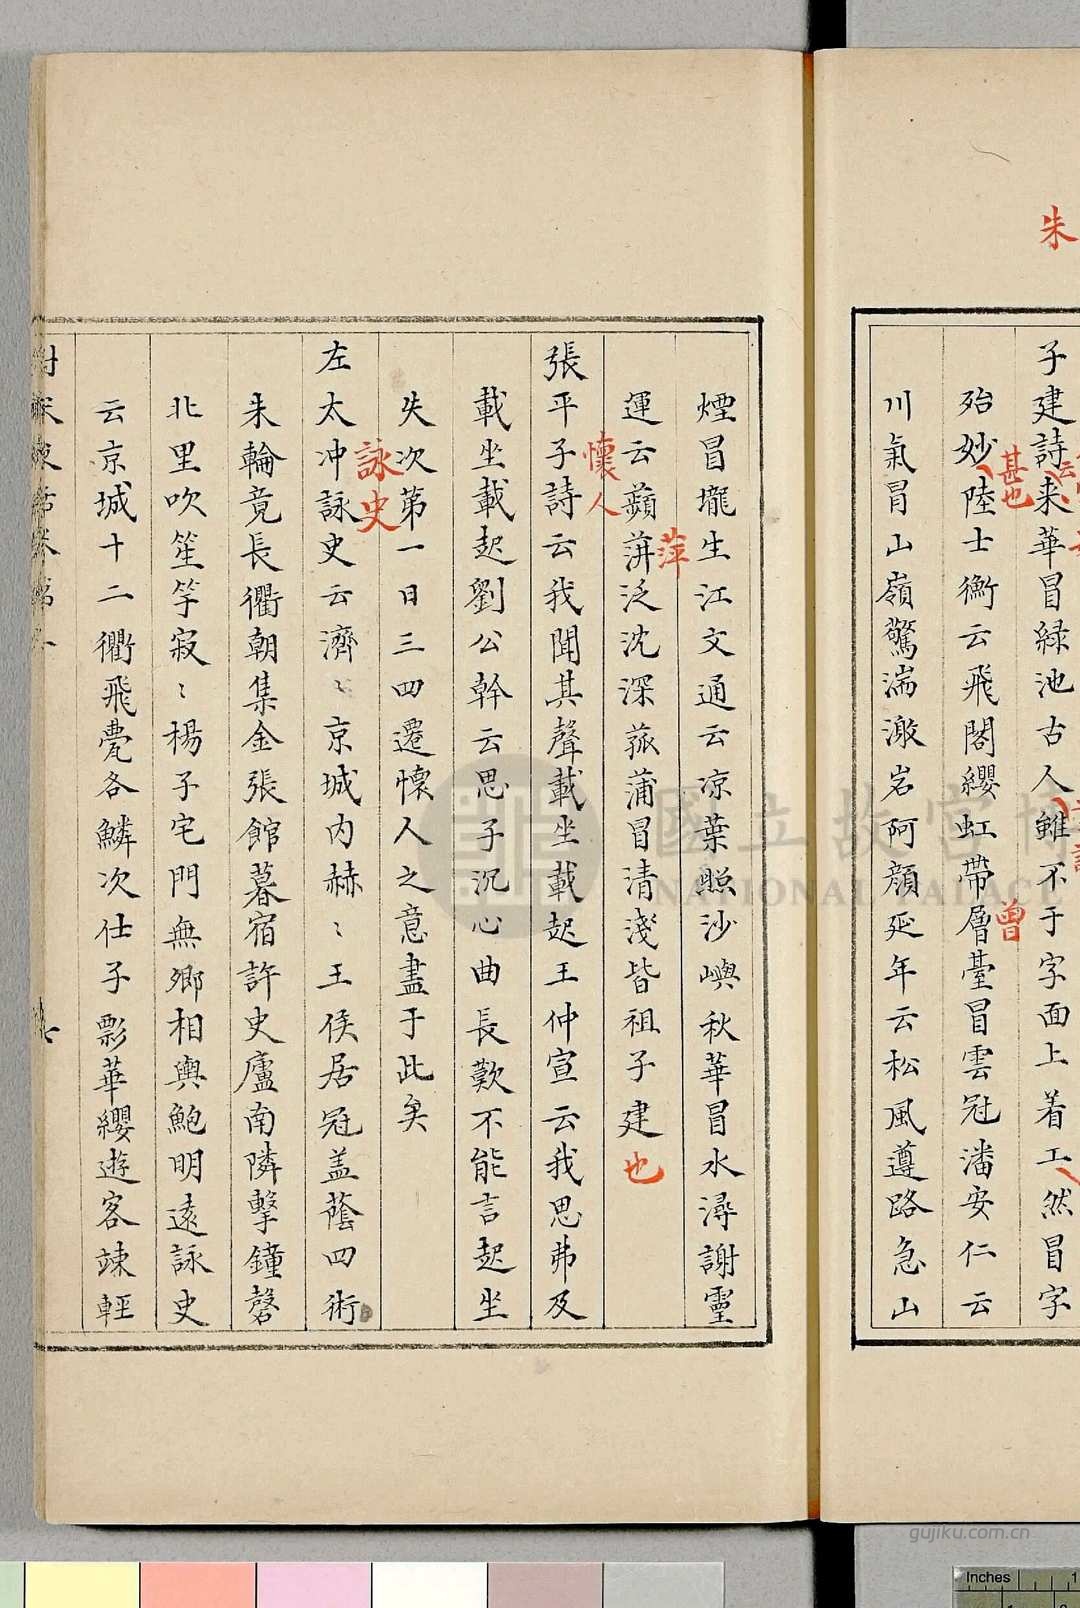 朱
子建詩朱華冒緑池古人雖不于字面上着工然冒字
殆妙陸士衡云飛閣纓虹帶層臺冒雲冠潘安仁云
甚也
曾
川氣冒山嶺驚湍激岩阿顔延年云松風遵路急山
煙冒壠生江文通云凉葉照沙嶼秋華冒水潯謝靈
運云蘋蓱泛沈深菰蒲冒清淺皆祖子建也
萍
懷人
張平子詩云我聞其聲載坐載起王仲宣云我思弗及
載坐載起劉公幹云思子沉心曲長歎不能言起坐
失次第一日三四遷懷人之意盡于此矣
詠史
左太冲詠史云濟〻京城内赫〻王侯居冠盖蔭四術
朱輪竟長衢朝集金張館暮宿許史廬南隣擊鐘磬
北里吹笙竽寂〻楊子宅門無卿相輿鮑明遠詠史
云京城十二衢飛甍各鱗次仕子彯華纓遊客竦輕
國立故宮博
NATIONAL PALACE
gujiku.com.cn
Inches
1